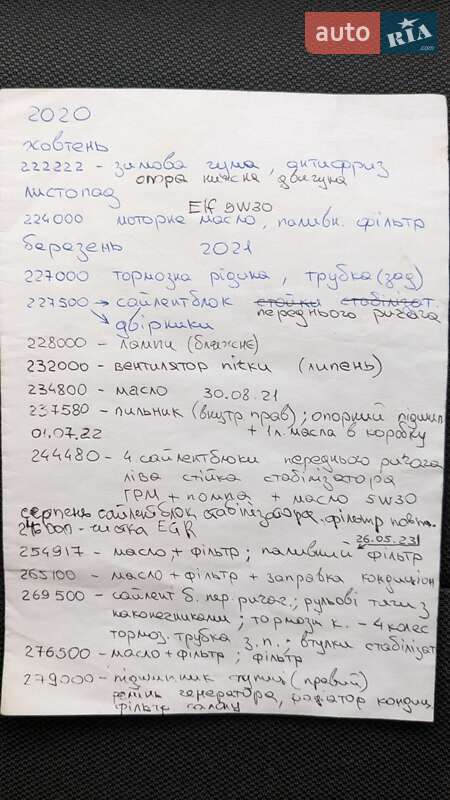 auto RIA .com
2020
жовтень
222222 - зимова гума, антифриз
опра нижня двигуна
листопад
Elf 5W30
224000 моторне масло, паливн. фільтр
березень 2021
227000 тормозна рідина, трубка (зад)
227500 → сайлентблок стойки стабілізат.
переднього ричага
→ двірники
228000 - лампи (ближнє)
232000 - вентилятор пічки (липень)
234800 - масло 30.08.21
237580 - пильник (внутр прав); опорний підшип
01.07.22 + 1л. масла в коробку
244480 - 4 сайлентблоки переднього ричага
ліва стійка стабілізатора
ГРМ + помпа + масло 5W30
серпень сайлентблок стабілізатора. фільтр повітр.
246000 - чистка EGR
26.05.23
254917 - масло + фільтр; паливний фільтр
265100 - масло + фільтр + заправка кондиціон
269500 - сайлент б. пер. ричаг.; рульові тяги з
наконечниками; тормози к. - 4 колес
тормоз. трубка з.п. втулки стабілізат
276500 - масло + фільтр; фільтр
279000 - підшипник ступиці (правий)
ремінь генератора, радіатор кондиц
фільтр салону